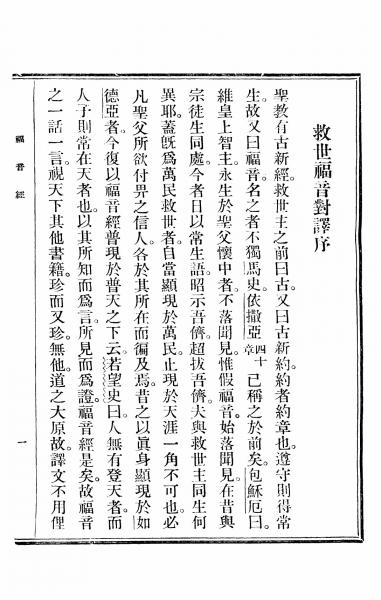 救世福音對譯序
聖敎有古新經。救世主之前曰古。又曰古新約。約者約章也。遵守則得常
生。故又曰福音。名之者不獨馬史。依撒亞四十章已稱之於前矣。包穌厄曰。
維皇上智主。永生於聖父懷中者。不落聞見。惟假福音。始落聞見。在昔與
宗徒生同處。今者日以常生語。昭示吾儕。超拔吾儕。夫與救世主同生何
異耶。蓋旣爲萬民救世者。自當顯現於萬民。止現於天涯一角不可也。必
凡聖父所欲付畀之信人。各於其所在而徧及焉。昔之以眞身顯現於如
德亞者。今復以福音經普現於普天之下云。若望史曰。人無有登天者。而
人子則常在天者也。以其所知而爲言。所見而爲證。福音經是矣。故福音
之一話一言。視天下其他書籍。珍而又珍。無他。道之大原故。譯文不用俚
福音經
一